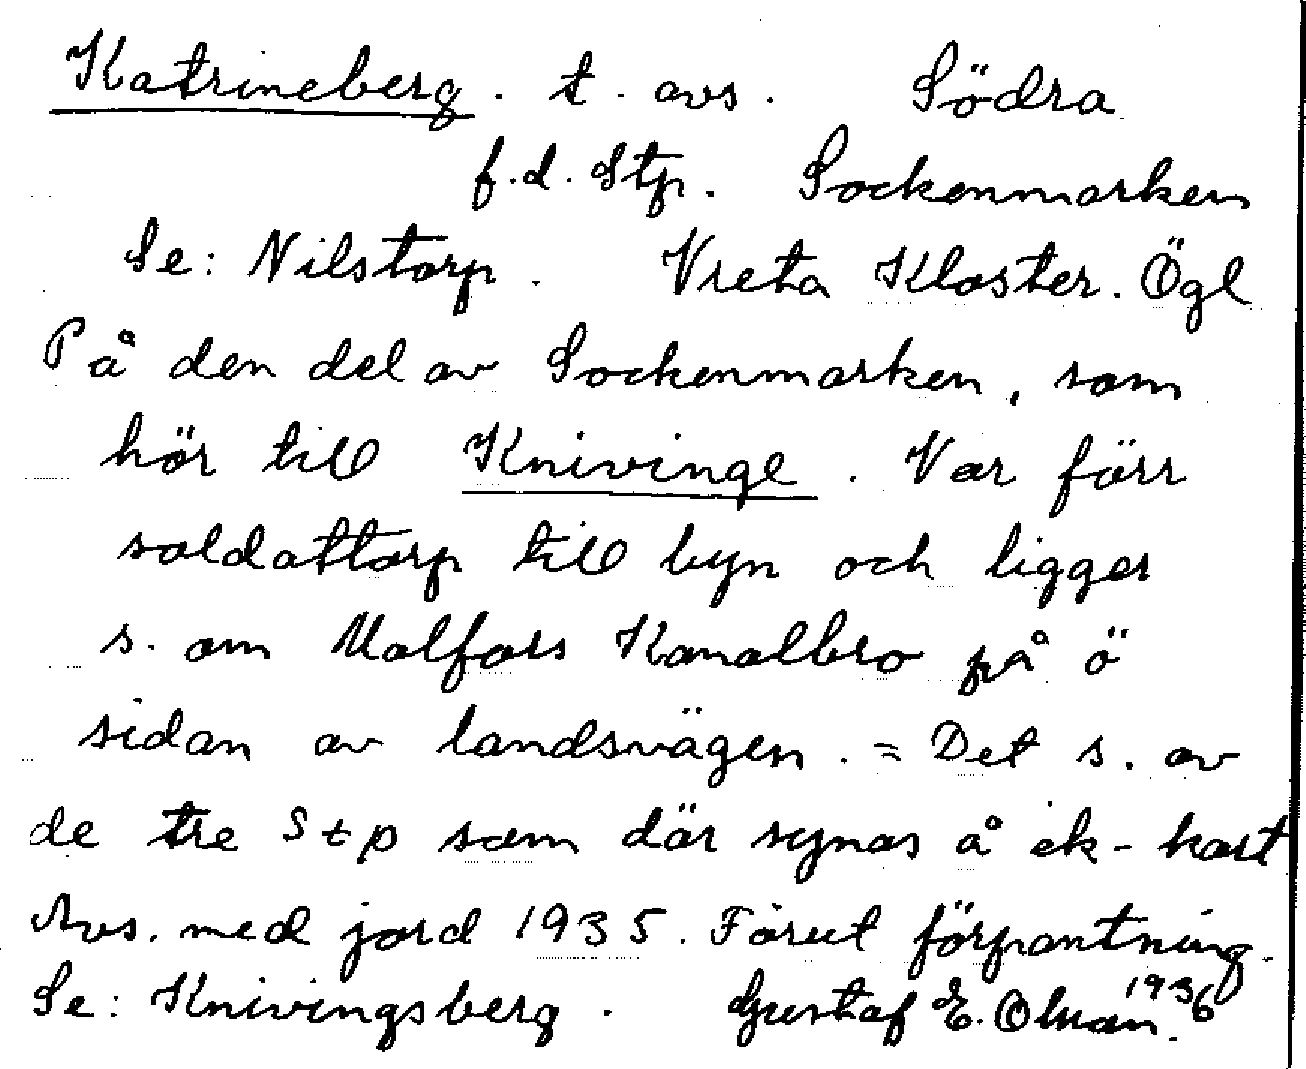 Katrineberg. t. avs. Södra
f.d. Stp. Sockenmarken
Se: Nilstorp. Vreta Kloster. Ögl
På den del av Sockenmarken, som
hör till Knivinge. Var förr
soldattorp till byn och ligger
s. om Malfors Kanalbro på ö
sidan av landsvägen. = Det s. av
de tre Stp som där synas å ek-kart
Avs. med jord 1935. Förut förpantning.
Se: Knivingsberg. Gustaf E. Olman. 1936